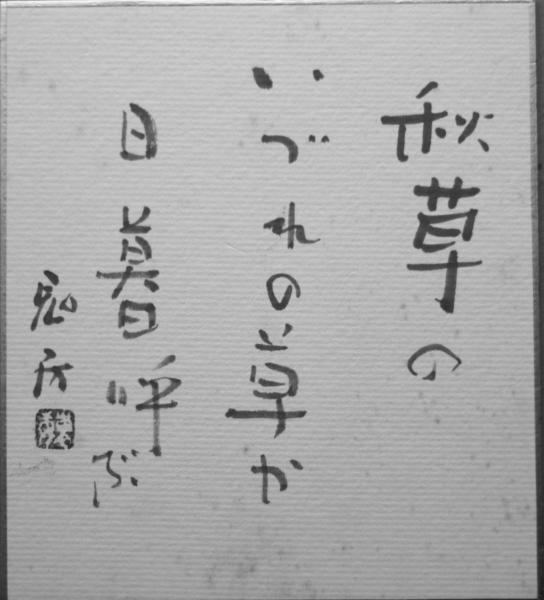 秋草の
いづれの草か
日暮呼ぶ